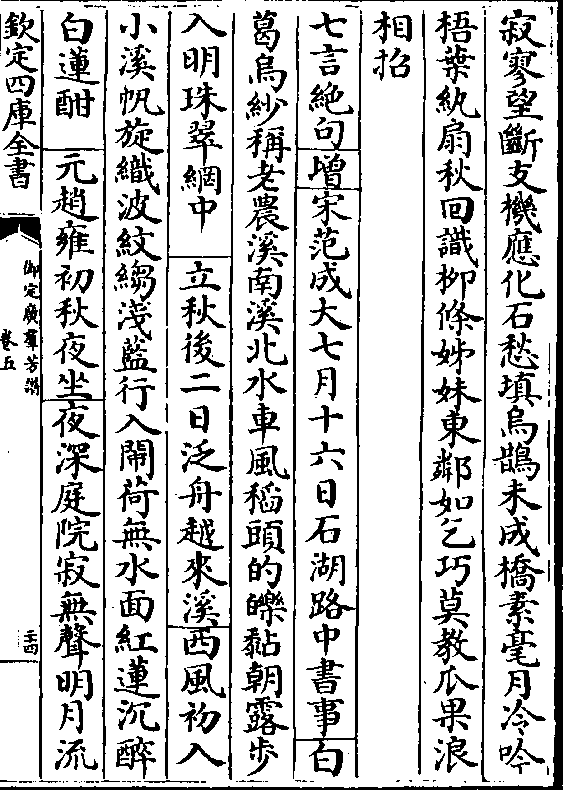 寂寥望斷支機應化石愁填烏鵲未成橋素毫月冷吟
梧葉紈扇秋回識柳條姊妹東鄰如乞巧莫教瓜果浪
相招
七言絶句增宋范成大七月十六日石湖路中書事白
葛烏紗稱老農溪南溪北水車風稻頭的皪黏朝露步
入明珠翠網中 立秋後二日泛舟越來溪西風初入
小溪帆旋織波紋縐淺藍行入鬧荷無水面紅蓮沉醉
白蓮酣 元趙雍初秋夜坐夜深庭院寂無聲明月流
欽定四庫全書
御定廣羣芳譜
卷五
二十四